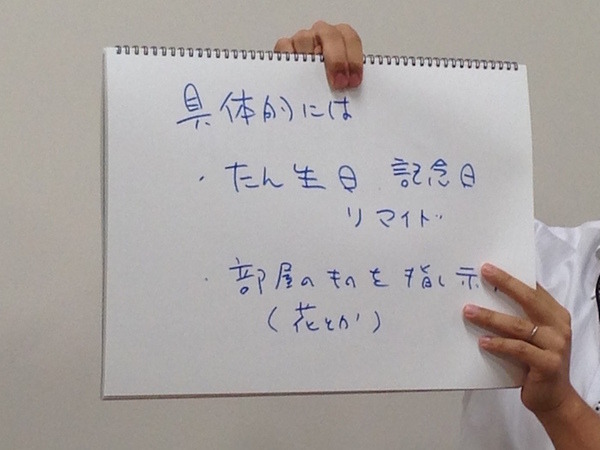 具体的には
・たん生日 記念日
リマイド
・部屋のものを指し示
(花とか)